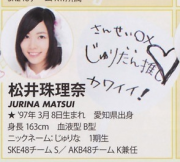 さんせいOX
じゅりたん推し
カワイイ!
松井珠理奈
JURINA MATSUI
★'97年3月8日生まれ 愛知県出身
身長163cm 血液型B型
ニックネーム:じゅりな 1期生
SKE48チームS/AKB48チームK兼任